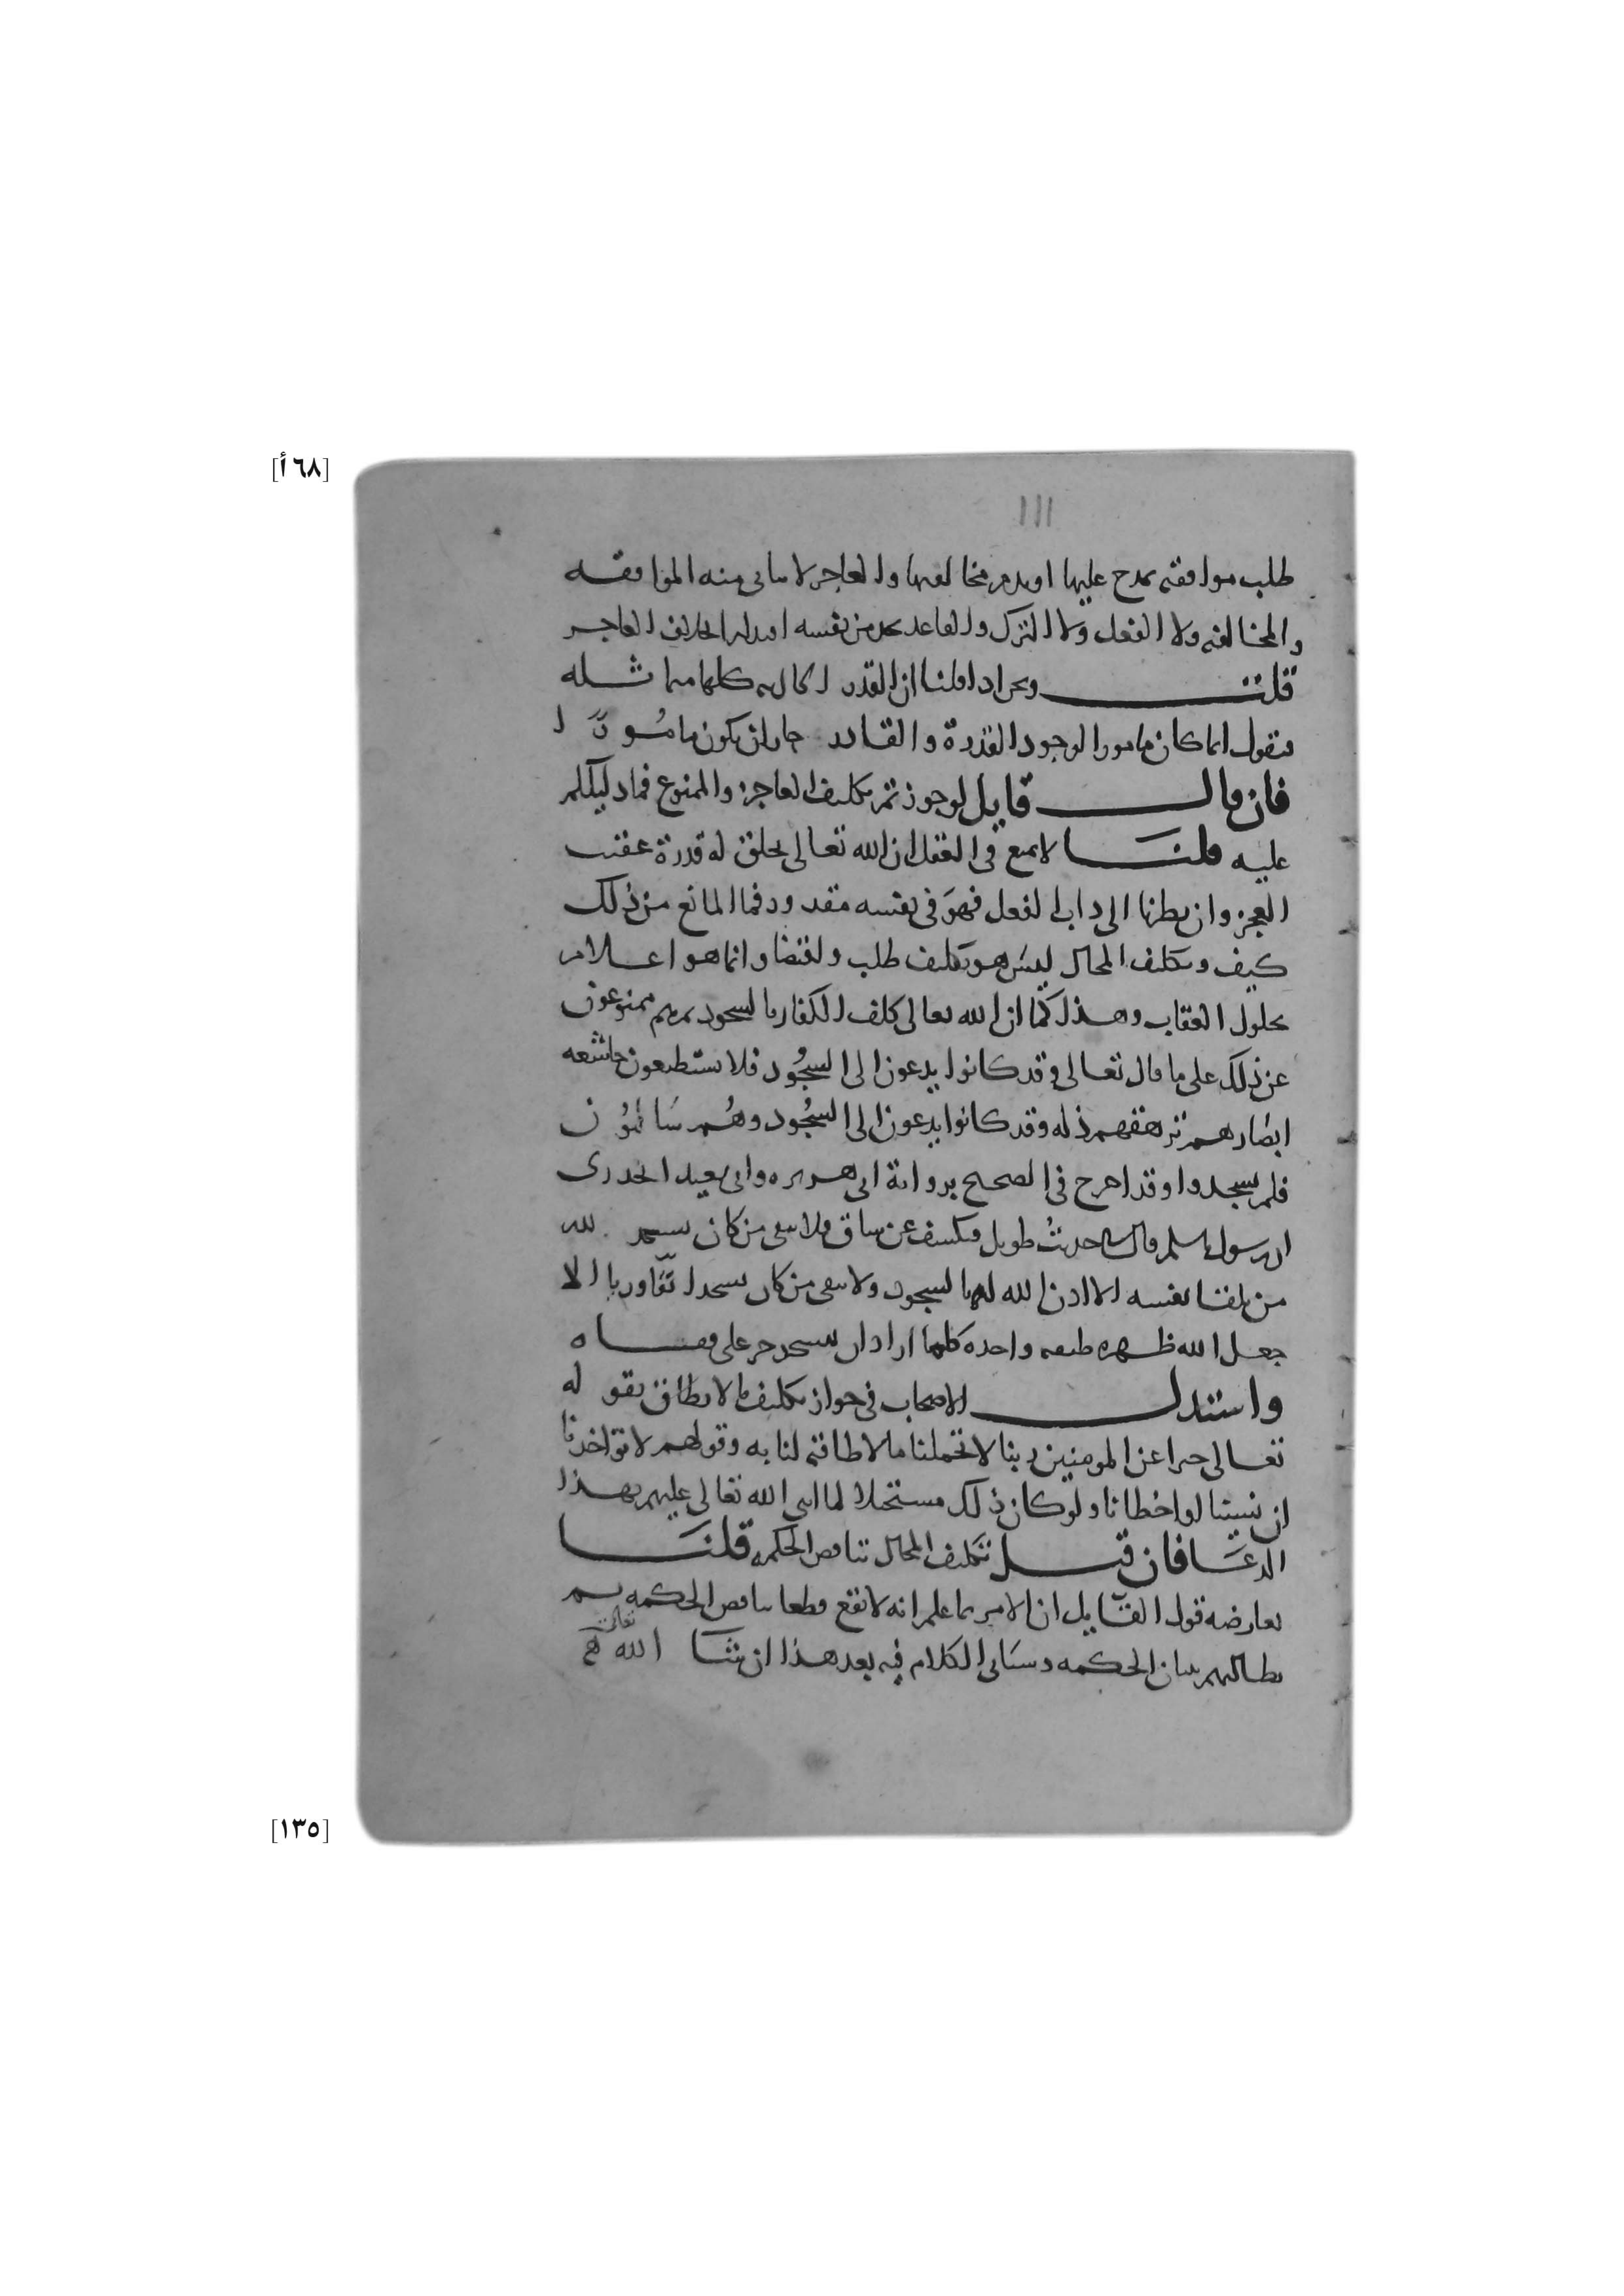 [٦٨ أ]
١١١
طلب موافقه يمدح عليها او يذم مخالفها والعاجز لا يتاتى منه الموافقه
والمخالفه ولا الفعل ولا الترك والقاعد يجد من نفسه اقتدارا بخلاف العاجز
قلنا ونحن اذا قلنا ان القدر كلها متماثله
فنقول انما كان مامورا لوجود القدرة والقادر جاز ان يكون مامورا
فان قال قايل لو جوزتم تكليف العاجز والممنوع فما دليلكم
عليه قلنا لا يمتنع في العقل ان الله تعالى يخلق له قدرة عقيب
العجز وان نظرنا الى ذات الفعل فهو في نفسه مقدور فما المانع من ذلك
كيف وتكليف المحال ليس هو تكليف طلب واقتضا وانما هو اعلام
بحلول العقاب وهذا كما ان الله تعالى كلف الكفار بالسجود ثم هم ممنوعون
عن ذلك على ما قال تعالى وقد كانوا يدعون الى السجود فلا يستطيعون خاشعه
ابصارهم ترهقهم ذله وقد كانوا يدعون الى السجود وهم سالمون
فلم يسجدوا وقد اخرج في الصحيح برواية ابي هريره وابي سعيد الخدرى
ان رسول قال حديث طويل فيكشف عن ساق فلا يبقى من كان يسجد لله
من تلقا نفسه الا اذن الله له بالسجود ولا يبقى من كان يسجد اتقا وريا الا
جعل الله ظهره طبقه واحده كلما اراد ان يسجد خر على قفاه
واستدل الاصحاب في جواز تكليف ما لا يطاق بقوله
تعالى خبرا عن المومنين ربنا لا تحملنا ما لا طاقة لنا به وقولهم لا تواخذنا
ان نسينا او اخطانا ولو كان ذلك مستحيلا لما اثنى الله تعالى عليهم بهذا
الدعا فان قيل تكليف المحال تناقض الحكمه قلنا
يعارضه قول القايل ان الامر بما علم انه لا يقع قطعا يناقض الحكمه ثم
نطالبهم ببيان الحكمه وسياتي الكلام فيه بعد هذا ان شا الله تعالى
[١٣٥]